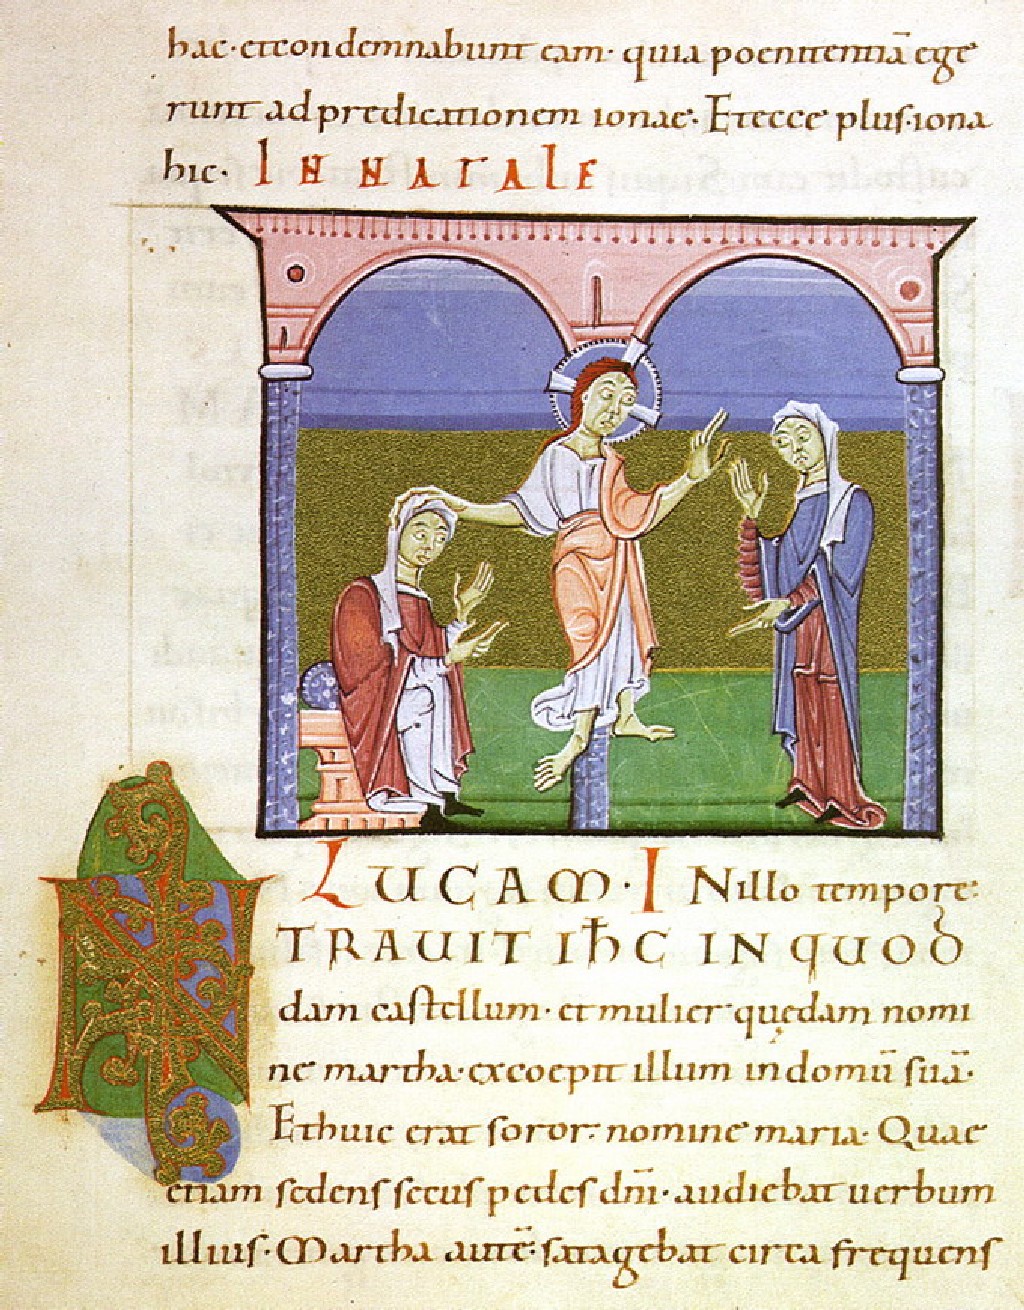 hac· et condemnabunt eam· quia poenitentiā ege
runt ad predicationem ionae· Et ecce plus· iona
hic· IN NATALE
LUCAM· IN illo tempore·
TRAVIT IħC IN QUOD
dam castellum· et mulier quędam nomi
ne martha· excoepit illum in domū suā·
Et huic erat soror· nomine maria· Quae
etiam sedens secus pedes dm̄· audiebat uerbum
illius· Martha autē· satagebat circa frequens